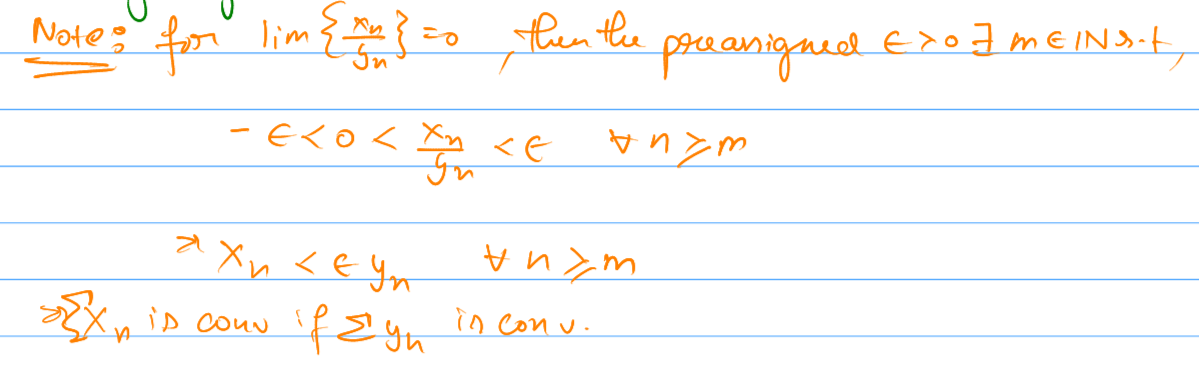 Note: for lim {xn/yn} = 0, then the preassigned ϵ > 0 ∃ m ∈ IN s.t,
- ϵ < 0 < xn/yn < ϵ ∀ n ⩾ m
⇒ xn < ϵ yn ∀ n ⩾ m
⇒ Σxn is conv if Σyn is conv.